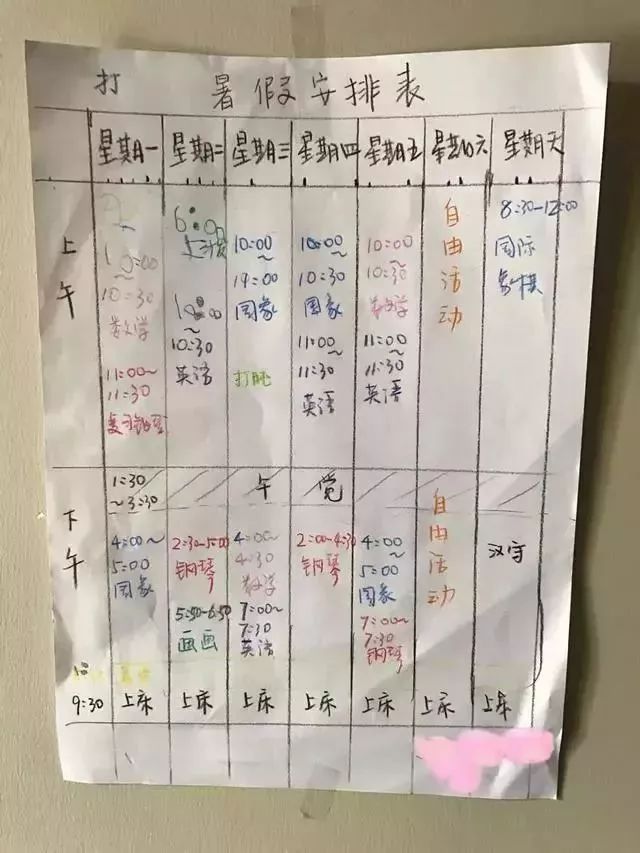 打 暑假安排表
星期一 星期二 星期三 星期四 星期五 星期六 星期天
上午
10:00
~
10:30
数学
11:00~
11:30
复习钢琴
6:00
10:00
~
10:30
英语
10:00
~
国象
打
10:00
~
10:30
国象
11:00
~
11:30
英语
10:00
~
10:30
数学
11:00
~
11:30
英语
自由活动
8:30-12:00
国际
象棋
1:30
~3:30
午 觉
下午
4:00~
5:00
国象
2:30-5:00
钢琴
5:50-6:50
画画
4:00~
4:30
数学
7:00~
7:30
英语
2:00-4:30
钢琴
4:00~
5:00
国象
7:00~
7:30
钢琴
自由活动
汉字
9:30 上床 上床 上床 上床 上床 上床 上床